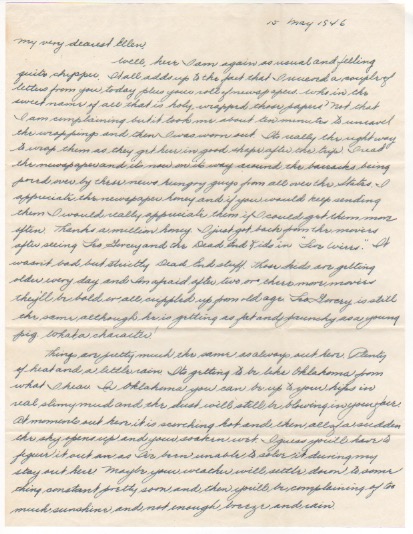 15 May 1946
My very dearest Ellen,
Well, here I am again as usual and feeling
quite chipper. It all adds up to the fact that I received a couple of
letters from you today plus your roll of newspapers. Who in the
sweet name of all that is holy wrapped those papers? Not that
I am complaining but it took me about ten minutes to unravel
the wrapping and then I was worn out. Its really the right way
to wrap them as they get here in good shape after the trip. I read
the newspaper and its now on its way around the barracks being
pored over by these news hungry guys from all over the States. I
appreciate the newspaper honey and if you would keep sending
them I would really appreciate them if I could get them more
often. Thanks a million honey. I just got back from the movies
after seeing Leo Gorcey and the Dead End Kids in "Live Wires." It
wasn't bad but strictly Dead End stuff. Those kids are getting
older every day and Im afraid after two or three more movies
they'll be bald or all crippled up from old age. Leo Gorcey is still
the same although he is getting as fat and paunchy as a young
pig. What a character!
Things are pretty much the same as always out here. Plenty
of heat and a little rain. Its getting to be like Oklahoma from
what I hear. In Oklahoma you can be up to your hips in
real slimy mud and the dust will still be blowing in your face.
At moments out here it is scorching hot and then all of a sudden
the sky opens up and your soaken wet. I guess you'll have to
figure it out as I've been unable to solve it during my
stay out here. Maybe your weather will settle down to some
thing constant pretty soon and then you'll be complaining of too
much sunshine and not enough breeze and rain